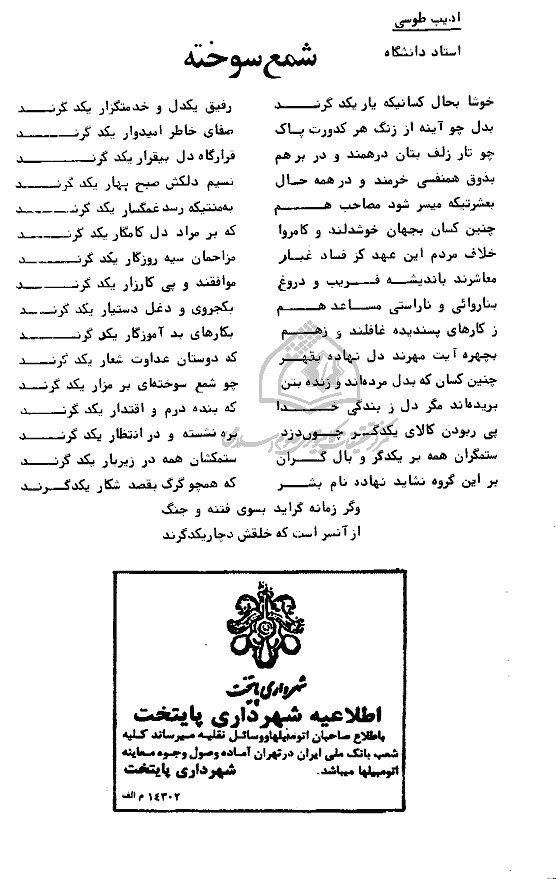 ادیب طوسی
استاد دانشگاه
شمع سوخته
خوشا بحال کسانیکه یار یکدگرند رفیق یکدل و خدمتگزار یکدگرند
بدل چو آینه از زنگ هر کدورت پاک صفای خاطر امیدوار یکدگرند
چو تار زلف بتان درهمند و در بر هم قرارگاه دل بیقرار یکدگرند
بذوق همنفسی خرمند و در همه حال نسیم دلکش صبح بهار یکدگرند
بعشرتیکه میسر شود مصاحب هم به‌منتیکه رسد غمگسار یکدگرند
چنین کسان بجهان خوشدلند و کامروا که بر مراد دل کامگار یکدگرند
خلاف مردم این عهد کز فساد غبار مزاحمان سیه روزگار یکدگرند
معاشرند باندیشه فریب و دروغ موافقند و پی کارزار یکدگرند
بناروائی و ناراستی مساعد هم بکجروی و دغل دستیار یکدگرند
ز کارهای پسندیده غافلند و زهم بکارهای بد آموزگار یکدگرند
بچهره آیت مهرند دل نهاده بقهر که دوستان عداوت شعار یکدگرند
چنین کسان که بدل مرده‌اند و زنده بتن چو شمع سوخته‌ای بر مزار یکدگرند
بریده‌اند مگر دل ز بندگی خدا که بنده درم و اقتدار یکدگرند
پی ربودن کالای یکدگر چون دزد بره نشسته و در انتظار یکدگرند
ستمگران همه بر یکدگر و بال گران ستمکشان همه در زیربار یکدگرند
بر این گروه نشاید نهاده نام بشر که همچو گرگ بقصد شکار یکدگرند
وگر زمانه گراید بسوی فتنه و جنگ
از آنسر است که خلقش دچار یکدگرند
شهرداری پایتخت
اطلاعیه شهرداری پایتخت
باطلاع صاحبان اتومبیلها و وسائل نقلیه میرساند کلیه
شعب بانک ملی ایران در تهران آماده وصول وجوه معاینه
اتومبیلها میباشد. شهرداری پایتخت
۱۴۳۰۲ م الف